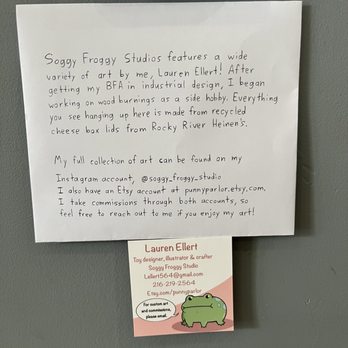 Soggy Froggy Studios features a wide
variety of art by me, Lauren Ellert! After
getting my BFA in industrial design, I began
working on wood burnings as a side hobby. Everything
you see hanging up here is made from recycled
cheese box lids from Rocky River Heinen's.
My full collection of art can be found on my
Instagram account, @soggy_froggy_studio
I also have an Etsy account at punnyparlor.etsy.com,
I take commissions through both accounts, so
feel free to reach out to me if you enjoy my art!
Lauren Ellert
Toy designer, illustrator & crafter
Soggy Froggy Studio
Lellert564@gmail.com
216-219-2564
Etsy.com/punnyparlor
For custom art
and commissions,
please email.